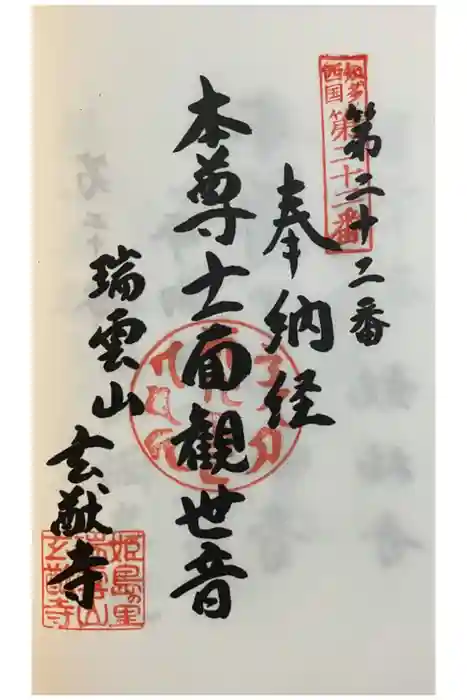 第二十二番
知多
西国
第二十二番
奉納経
本尊十一面觀世音
瑞雲山
玄猷寺
姫島の里
瑞雲山
玄猷寺